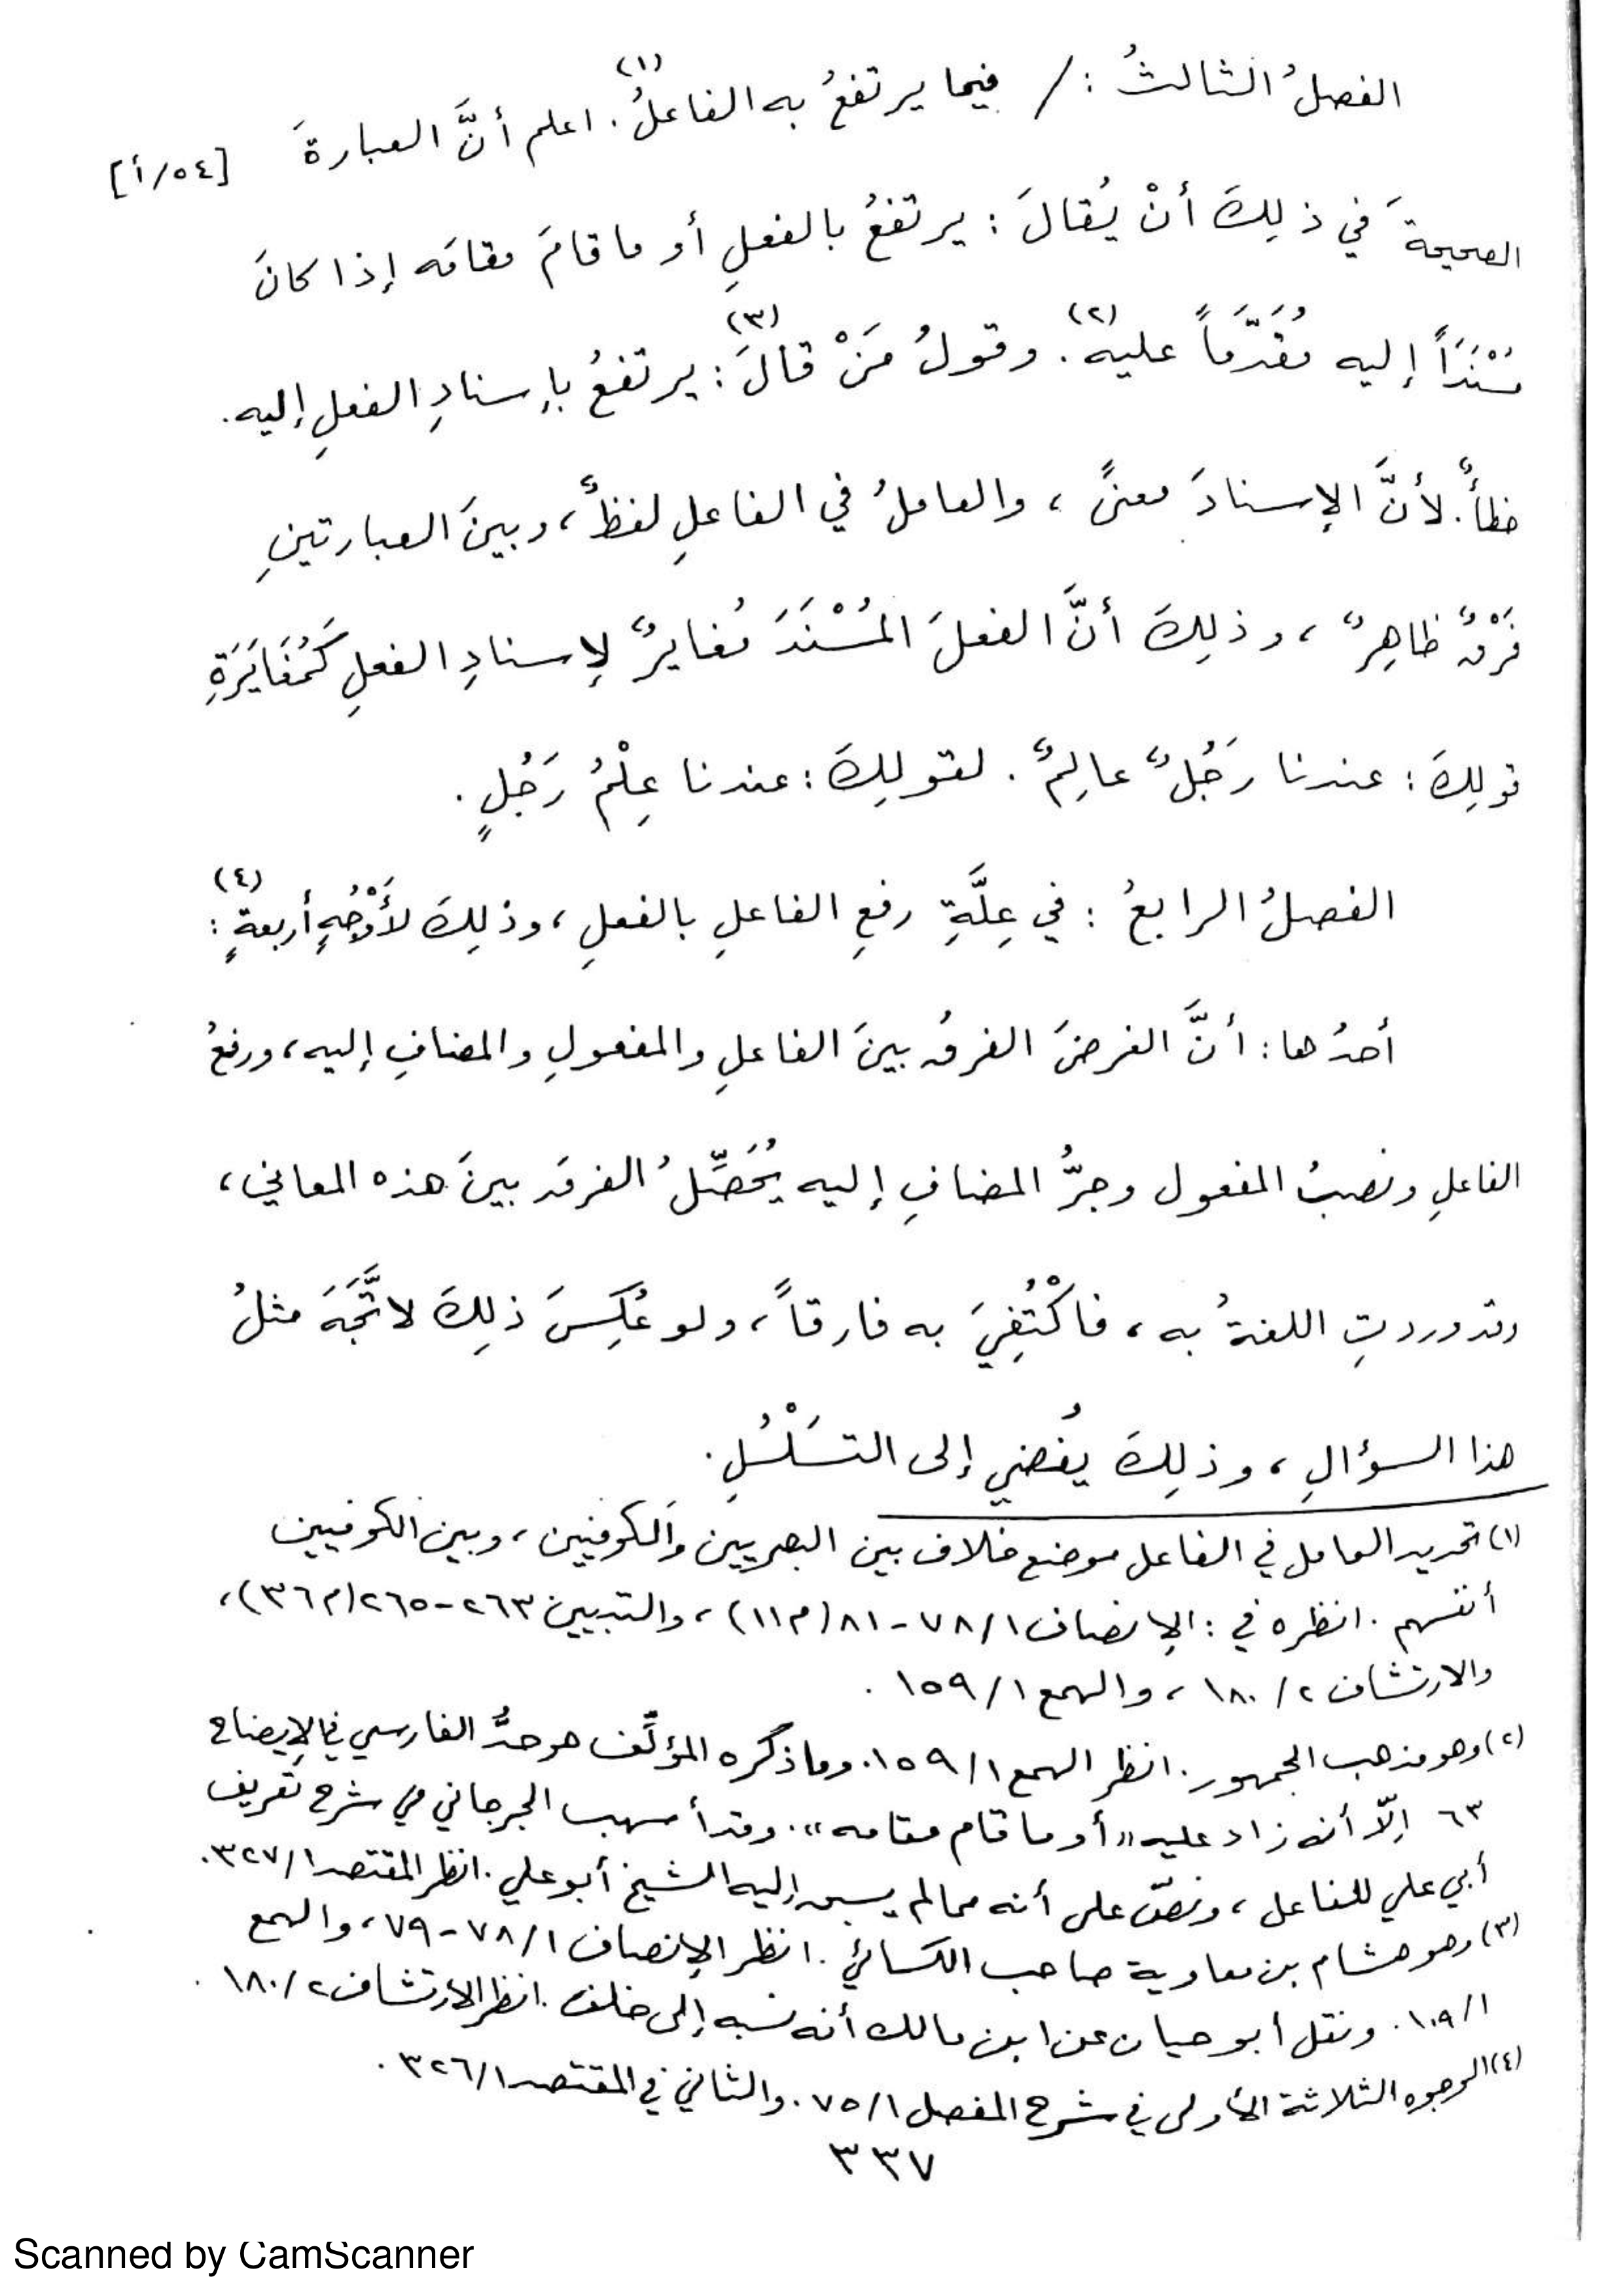 الفصلُ الثالثُ : / فيما يرتفعُ به الفاعلُ(١). اعلم أنَّ العبارةَ [٥٤/أ]
الصحيحةَ في ذلِكَ أنْ يُقالَ : يرتفعُ بالفعلِ أو ما قامَ مقامَه إذا كانَ
مُسْنَدَاً إليه مُقَدَّمَاً عليه(٢). وقولُ مَنْ قالَ(٣): يرتفعُ بإسنادِ الفعلِ إليه.
خطأٌ. لأنَّ الإسنادَ معنىً ، والعاملُ في الفاعلِ لفظٌ، وبينَ العبارتينِ
فَرْقٌ ظاهِرٌ ، وذلِكَ أنَّ الفعلَ المُسْنَدَ مُغايرٌ لإسنادِ الفعلِ كَمُغَايَرَةِ
قولِكَ : عندنا رَجُلٌ عالِمٌ . لقولِكَ : عندنا عِلْمُ رَجُلٍ .
الفصلُ الرابعُ : في عِلَّةِ رفعِ الفاعلِ بالفعلِ ، وذلِكَ لأَوْجُهٍ أربعةٍ(٤) :
أحدُها : أنَّ الغرضَ الفرقُ بينَ الفاعلِ والمفعولِ والمضافِ إليه ، ورفعُ
الفاعلِ ونصبُ المفعول وجرُّ المضافِ إليه يُحَصِّلُ الفرقَ بينَ هذه المعاني ،
وقد وردتِ اللغةُ به ، فاكْتُفِيَ به فارقاً ، ولو عُكِسَ ذلِكَ لاتَّجَهَ مثلُ
هذا السؤالِ ، وذلِكَ يُفضي إلى التسَلْسُلِ .
(١) تحديد العامل في الفاعل موضع خلاف بين البصريين والكوفيين ، وبين الكوفيين
أنفسهم . انظره في : الإنصاف ١/ ٧٨ - ٨١ (م١١) ، والتبيين ٢٦٣ - ٢٦٥ (م٣٦) ،
والارتشاف ٢/ ١٨٠ ، والهمع ١/ ١٥٩ .
(٢) وهو مذهب الجمهور . انظر الهمع ١/ ١٥٩. وما ذكره المؤلّف هو حدُّ الفارسي في الإيضاح
٦٣ إلّا أنه زاد عليه «أو ما قام مقامه». وقد أسهب الجرجاني في شرح تعريف
أبي علي للفاعل ، ونصّ على أنه مما لم يسبق إليه الشيخ أبو علي . انظر المقتصد ١/ ٣٢٧ .
(٣) وهو هشام بن معاوية صاحب الكسائي . انظر الإنصاف ١/ ٧٨ - ٧٩ ، والهمع
١/ ١٠٩ . ونقل أبو حيان عن ابن مالك أنه نسبه إلى خلف . انظر الارتشاف ٢/ ١٨٠ .
(٤) الوجوه الثلاثة الأولى في شرح المفصل ١/ ٧٥ . والثاني في المقتصد ١/ ٣٢٦ .
٣٣٧
Scanned by CamScanner